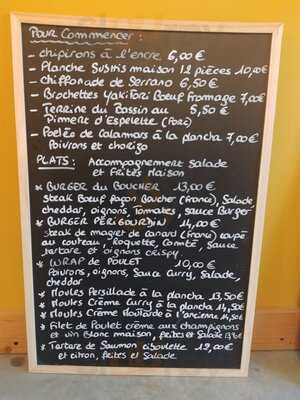 Pour Commencer :
- chipirons à l'encre 6,00 €
- Planche Sushis maison 12 pièces 10,00€
- chiffonade de Serrano 6,50 €
- Brochettes Yakitori Boeuf fromage 7,00€
- Terrine du Bassin au 5,50 €
Piment d'Espelette (Porc)
- Poêlée de Calamars à la plancha 7,00€
Poivrons et chorizo
PLATS : Accompagnement Salade
et Frites Maison
* BURGER du BOUCHER 13,00€
Steak Boeuf façon Boucher (France), Salade
cheddar, oignons, Tomates, sauce Burger
* BURGER PÉRIGOURDIN 14,00€
Steak de magret de canard (France) coupé
au couteau, Roquette, Comté, Sauce
tartare et oignons crispy
* WRAP de POULET 10,00€
Poivrons, oignons, Sauce Curry, Salade,
cheddar
* Moules Persillade à la plancha 13,50€
* Moules Crème Curry à la plancha 14,50€
* Moules Crème Moutarde à l'ancienne 14,50€
* Filet de Poulet crème aux champignons
et vin Blanc maison, frites et Salade
* Tartare de Saumon ciboulette 12,00€
et citron, frites et Salade